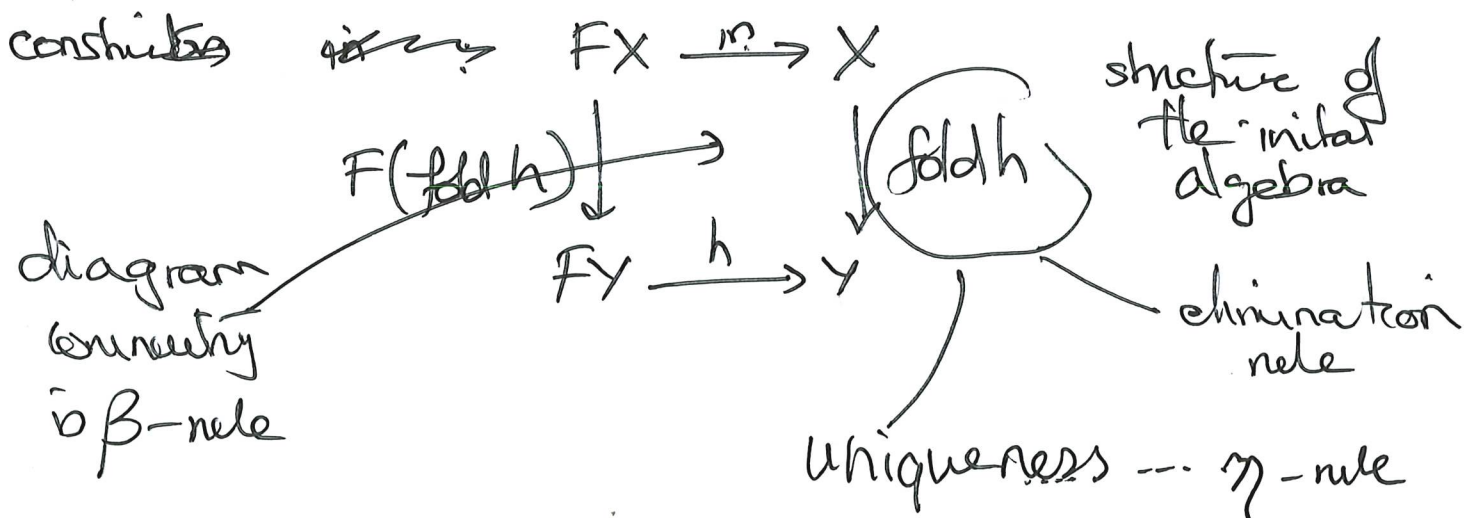 constructors
FX in X
structure of
the initial
algebra
F(fold h)
fold h
diagram
commuting
is β-rule
FY h Y
elimination
rule
Uniqueness --- η-rule